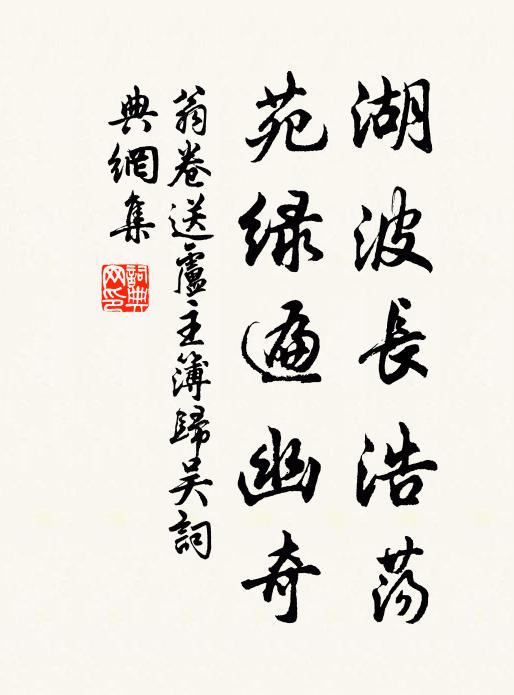 湖波長浩荡
苑緑遍幽奇
翁卷送盧主簿歸吴詞
典網集
詞典网印